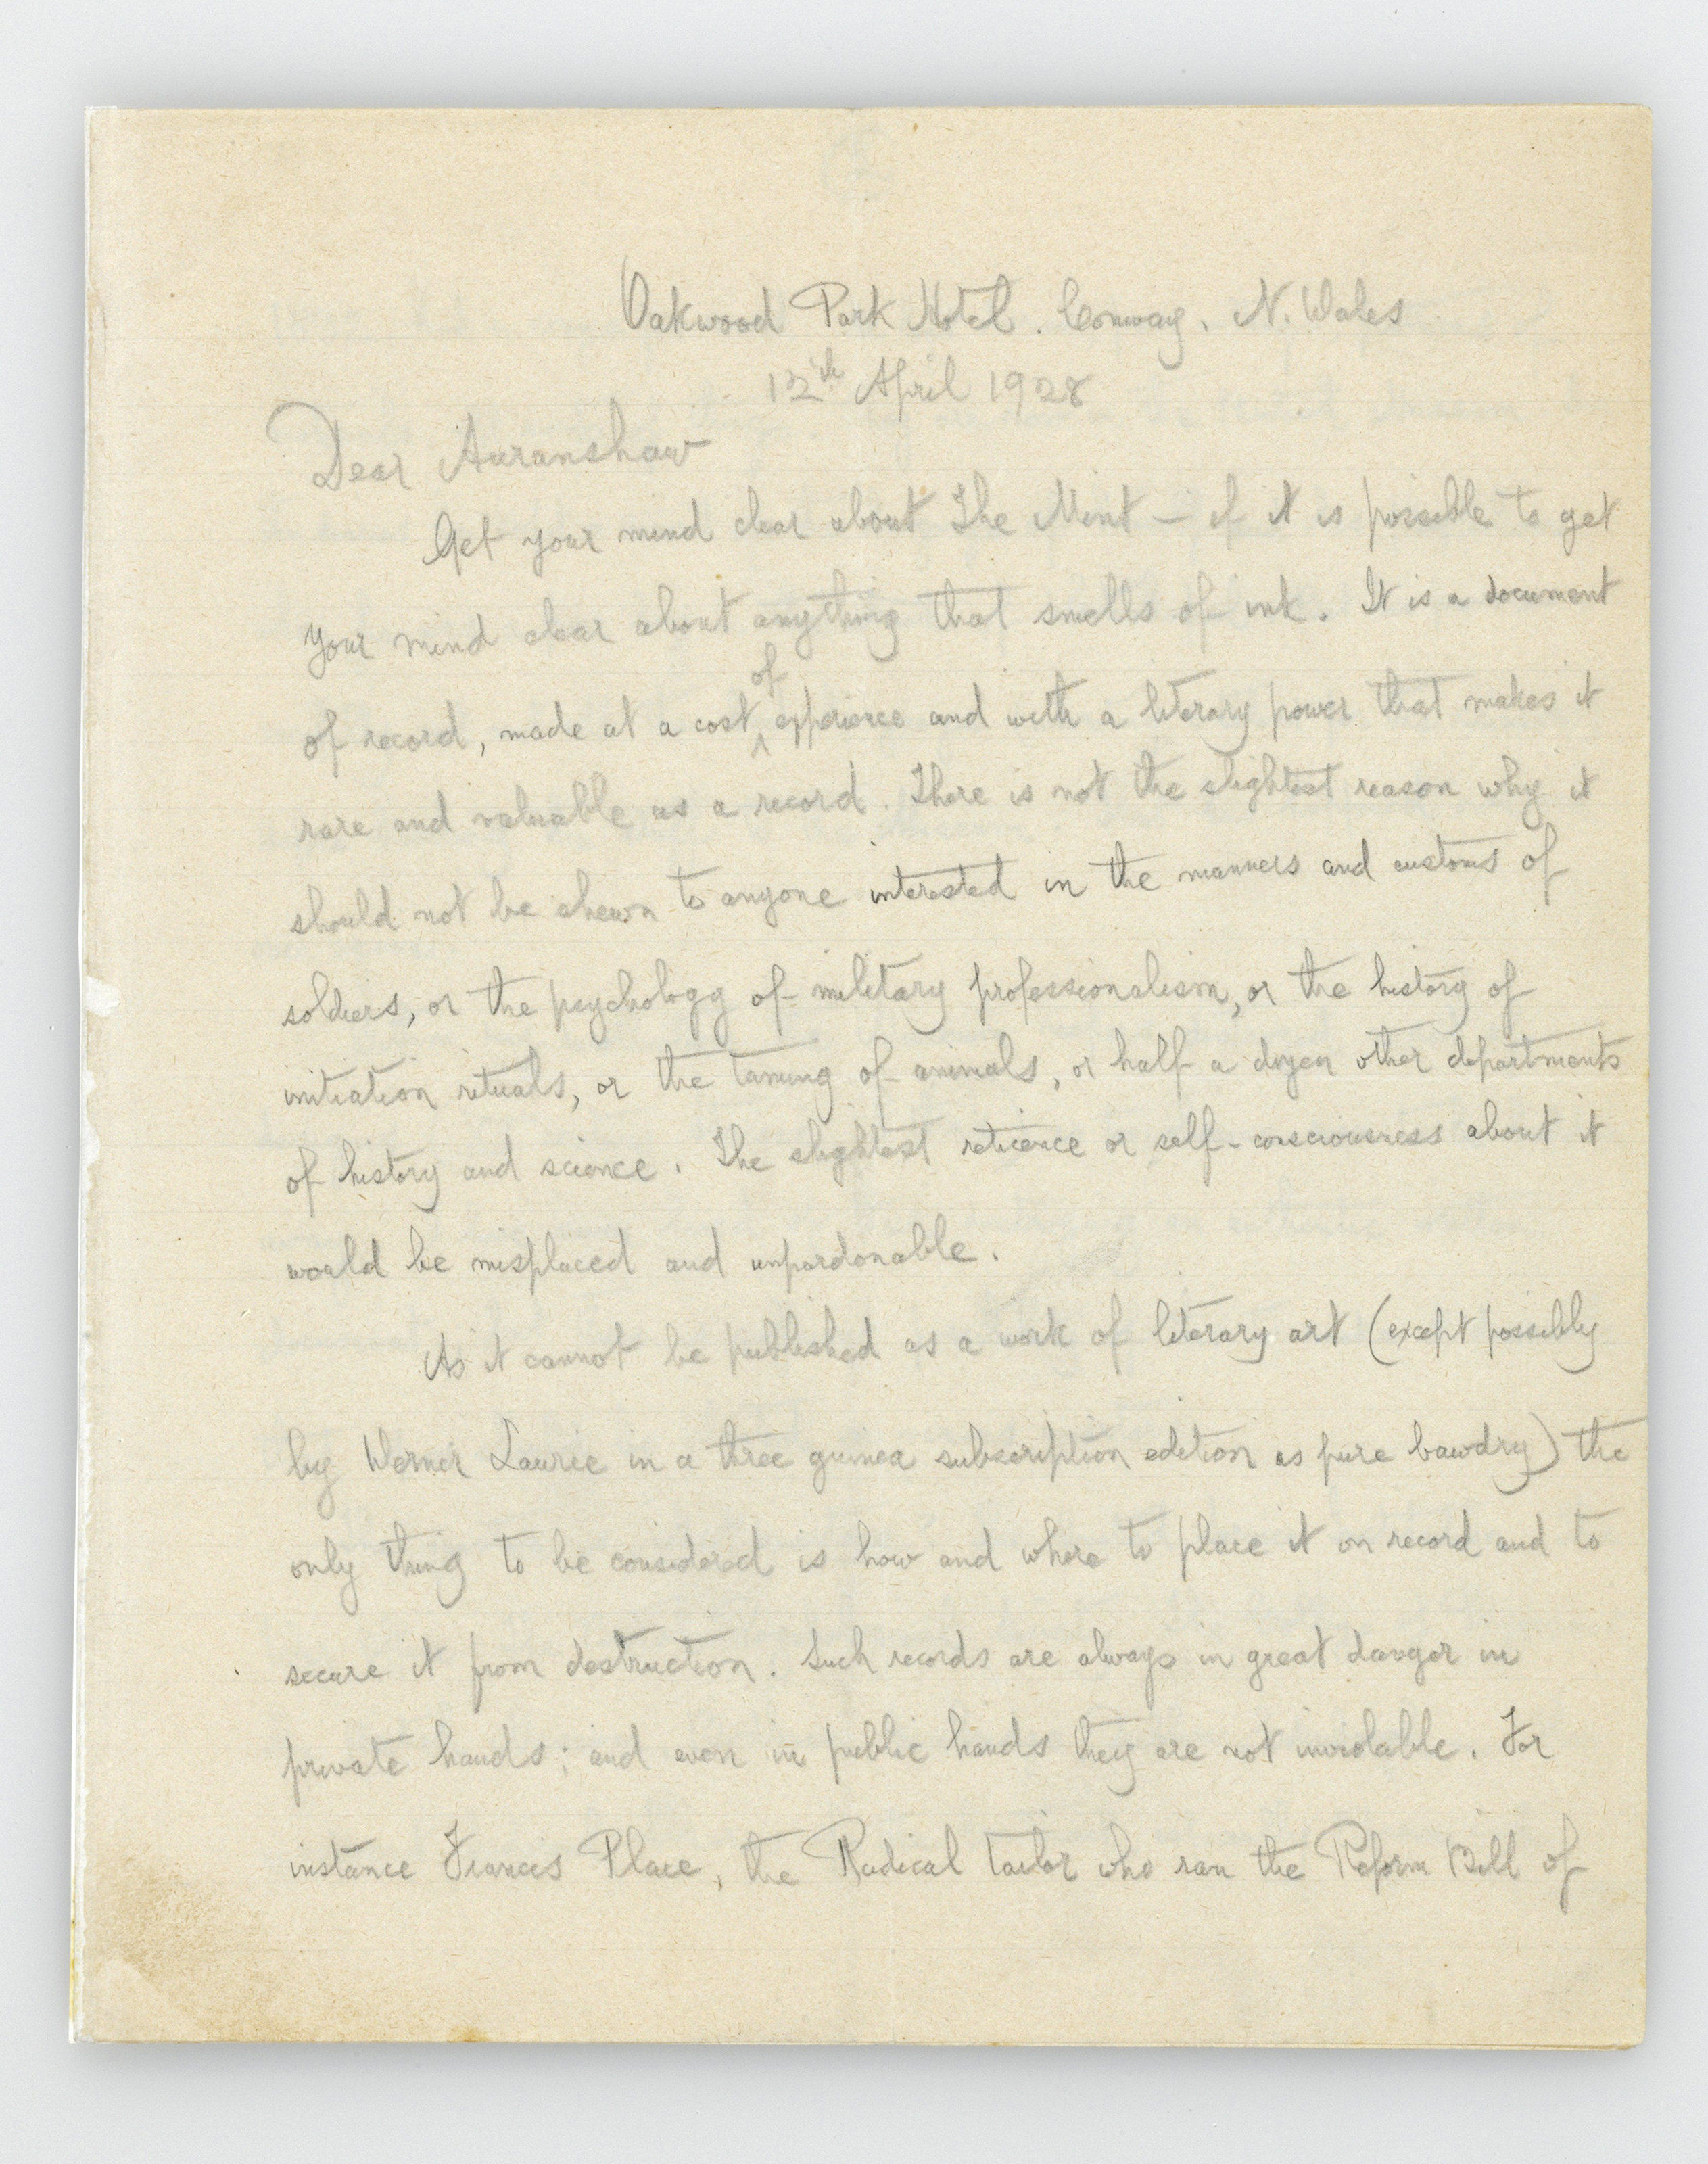 Oakwood Park Hotel. Conway. N. Wales
12th April 1928
Dear Auranshaw
Get your mind clear about The Mint – if it is possible to get
your mind clear about anything that smells of ink. It is a document
of
of record, made at a cost ^ experience and with a literary power that makes it
rare and valuable as a record. There is not the slightest reason why it
should not be shewn to anyone interested in the manners and customs of
soldiers, or the psychology of military professionalism, or the history of
initiation rituals, or the taming of animals, or half a dozen other departments
of history and science. The slightest reticence or self-consciousness about it
would be misplaced and unpardonable.
As it cannot be published as a work of literary art (except possibly
by Werner Laurie in a three guinea subscription edition as pure bawdry) the
only thing to be considered is how and where to place it on record and to
secure it from destruction. Such records are always in great danger in
private hands; and even in public hands they are not inviolable. For
instance Francis Place, the Radical tailor who ran the Reform Bill of